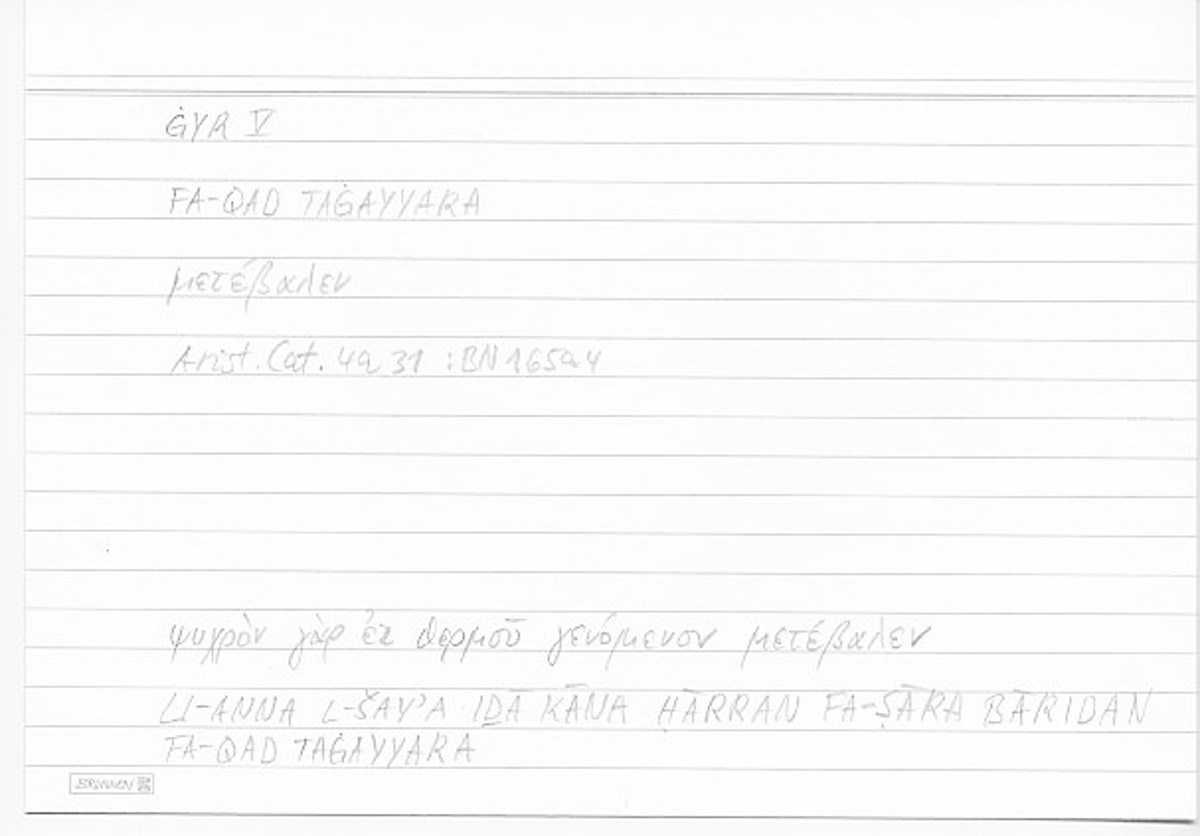 ĠYR V
FA-QAD TAĠAYYARA
μετέβαλεν
Arist. Cat. 4a 31 : BN 165a4
ψυχρὸν γὰρ ἐκ θερμοῦ γενόμενον μετέβαλεν
LI-ANNA L-ŠAY'A IḎĀ KĀNA ḤĀRRAN FA-ṢĀRA BĀRIDAN
FA-QAD TAĠAYYARA
BRUNNEN